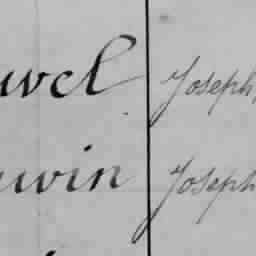 uvel Joseph,
win Joseph